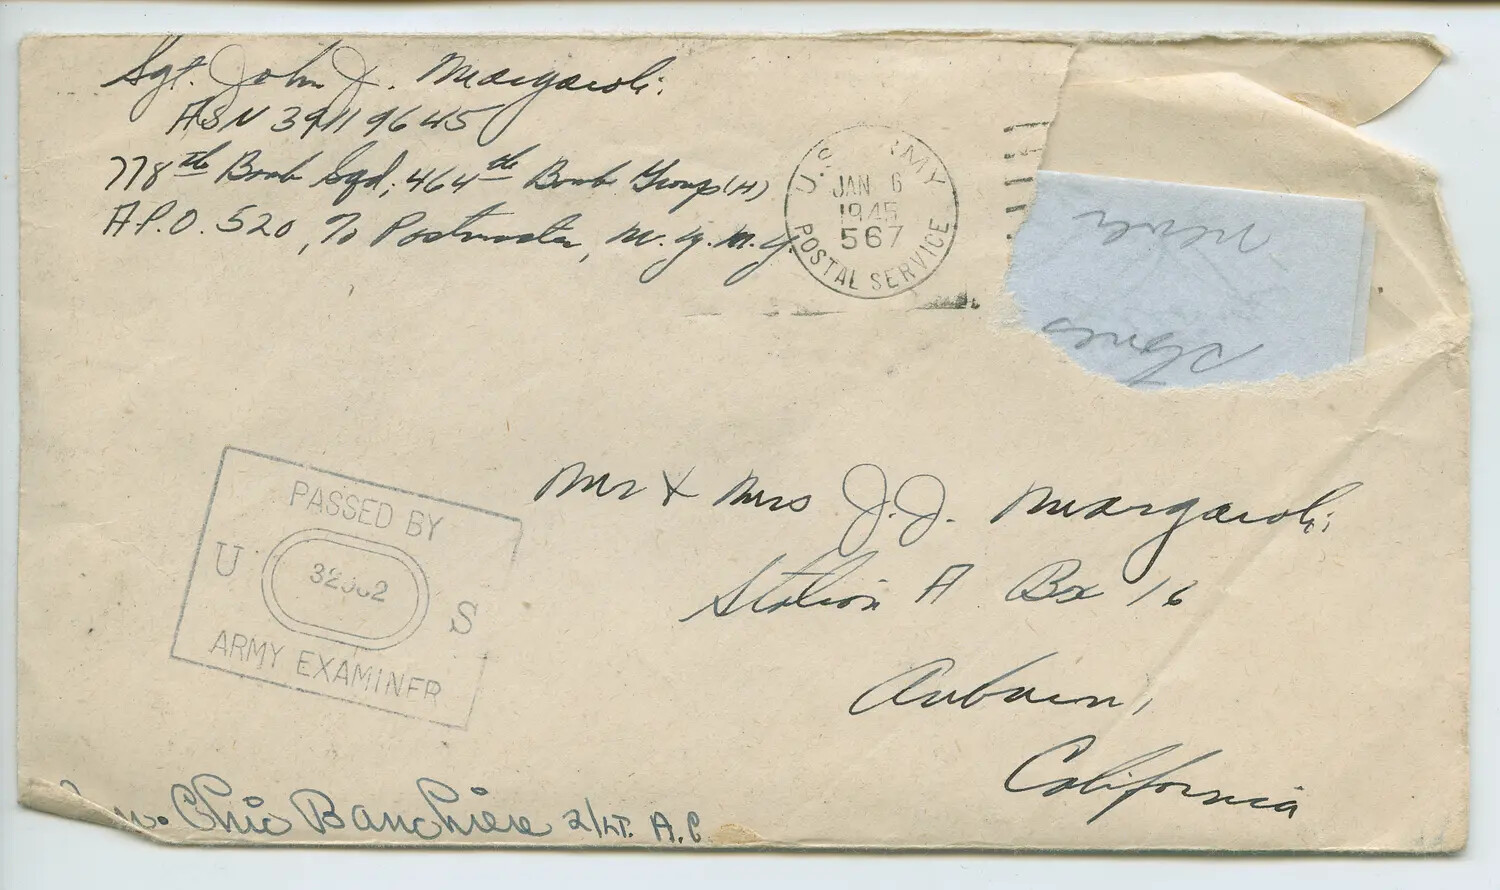 Sgt. John J. Margaroli
ASN 39119645
778th Bomb Sqd, 464th Bomb Group (H)
A.P.O. 520, % Postmaster, N.Y. N.Y.
U.S. ARMY
JAN 6
1945
567
POSTAL SERVICE
Agnes
PASSED BY
U S
ARMY EXAMINER
Mr & Mrs J.J. Margaroli
Station A Box 16
Auburn,
California
Chic Banchiere 2/LT. A.C